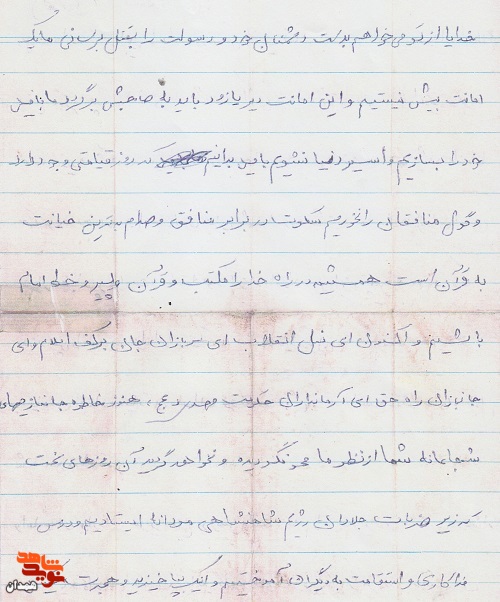 خدایا از تو می خواهم بدست دشمنان خود و رسولت را بقتل برسانی ما یک
امانت بیش نیستیم و این امانت دیر یا زود باید به صاحبش برگردد ما باید
خود را بسازیم و اسیر دنیا نشویم باید بدانیم که روز قیامتی وجود دارد
و گول منافقان را نخوریم سکوت در برابر منافق و صدام بدترین خیانت
به قرآن است همیشه در راه خدا و مکتب و قرآن و پیرو خط امام
باشیم و اکنون ای نسل انقلاب ای سربازان جان برکف اسلام وای
جانبازان راه حق ای آرمانداران حکومت مهدی عج، هنوز خاطره جانبازیهای
شجاعانه شما از نظر ما محو نگردیده و نخواهد گردید آن روزهای سخت
که زیر ضربات جلادان رژیم شاهنشاهی مردانه ایستادیم و درس
فداکاری و استقامت به دیگران آموختیم و اینک بپا خیزید و هجرت
شاهد
نوید
میدان